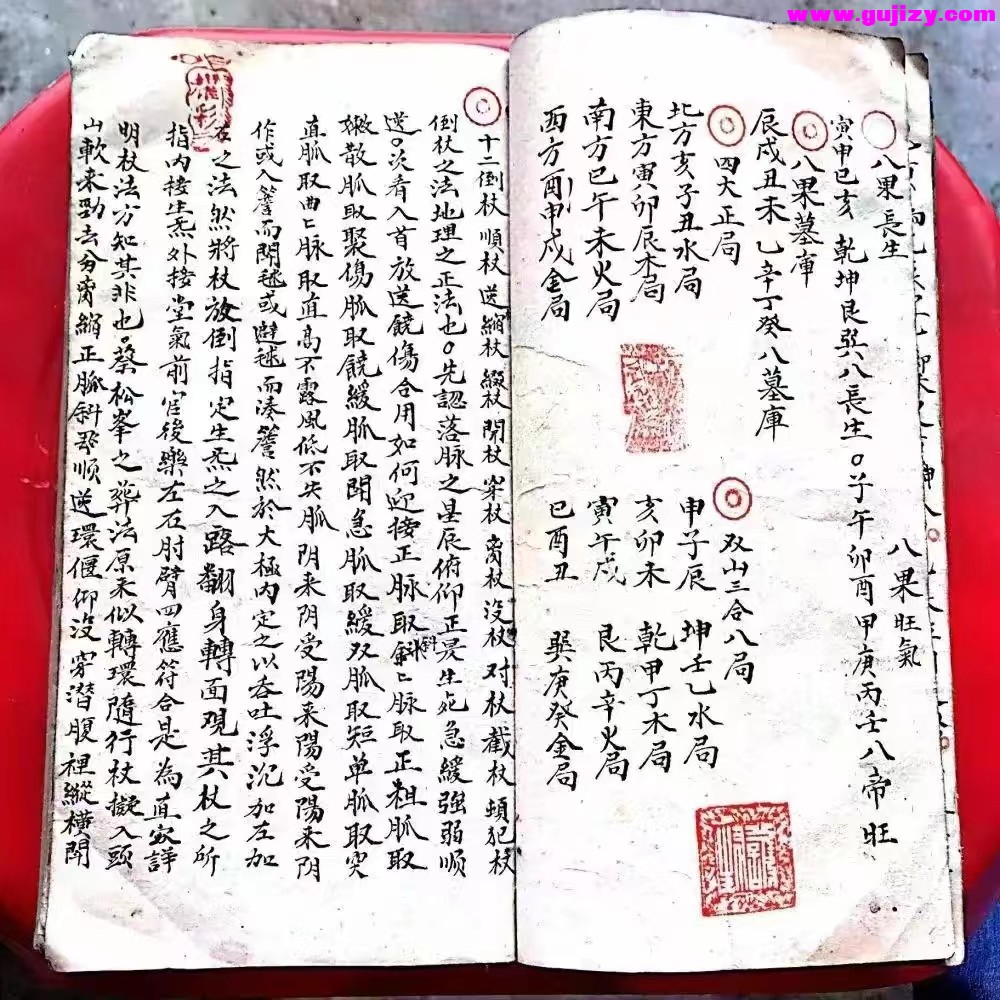 www.gujizy.com
八果長生
八果旺氣
寅申巳亥 乾坤艮巽八長生。子午卯酉甲庚丙壬八帝旺
八果墓庫
辰戌丑未乙辛丁癸八墓庫
四大正局
北方亥子丑水局
東方寅卯辰木局
南方巳午未火局
西方酉申戌金局
双山三合八局
申子辰 坤壬乙水局
亥卯未 乾甲丁木局
寅午戌 艮丙辛火局
巳酉丑 巽庚癸金局
十二倒杖順杖逆縮杖綴杖開杖穿杖杖没杖对杖截杖頓犯杖
倒杖之法地理之正法也。先認落脉之星辰俯仰正生死急緩強弱順
逆。次看入首放送饒傷合用如何迎接正脉取斜斜脉取正粗脈取
嫩散脈取聚傷脈取饒緩脈取閗急脈取緩双脈取短单脈取突
直脈取曲曲脉取直高不露風低不失脈阴来阴受陽来陽受陽来阴
作或入簷而閗毬或避毬而湊簷然於大極内定之以吞吐浮沉加左加
右之法然將杖放倒指定生炁之入路翻身轉面观其杖之所
指内接生炁外接堂氣前官後樂左右肘臂四應符合是為直詳
明杖法方知其非也。蔡松峯之葬法原来似轉環隨行杖擬入頭
山軟来勁去分縮正脈斜順逆環偃仰没穿潛腹裡縱横閗